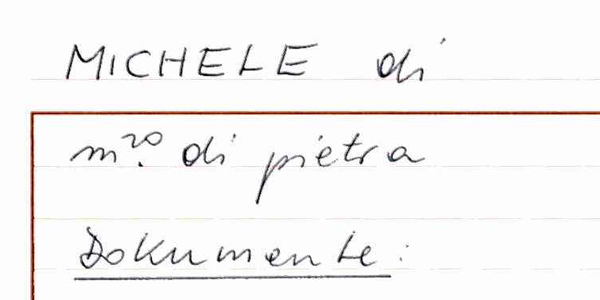 MICHELE di
m.ro di pietra
Dokumente: